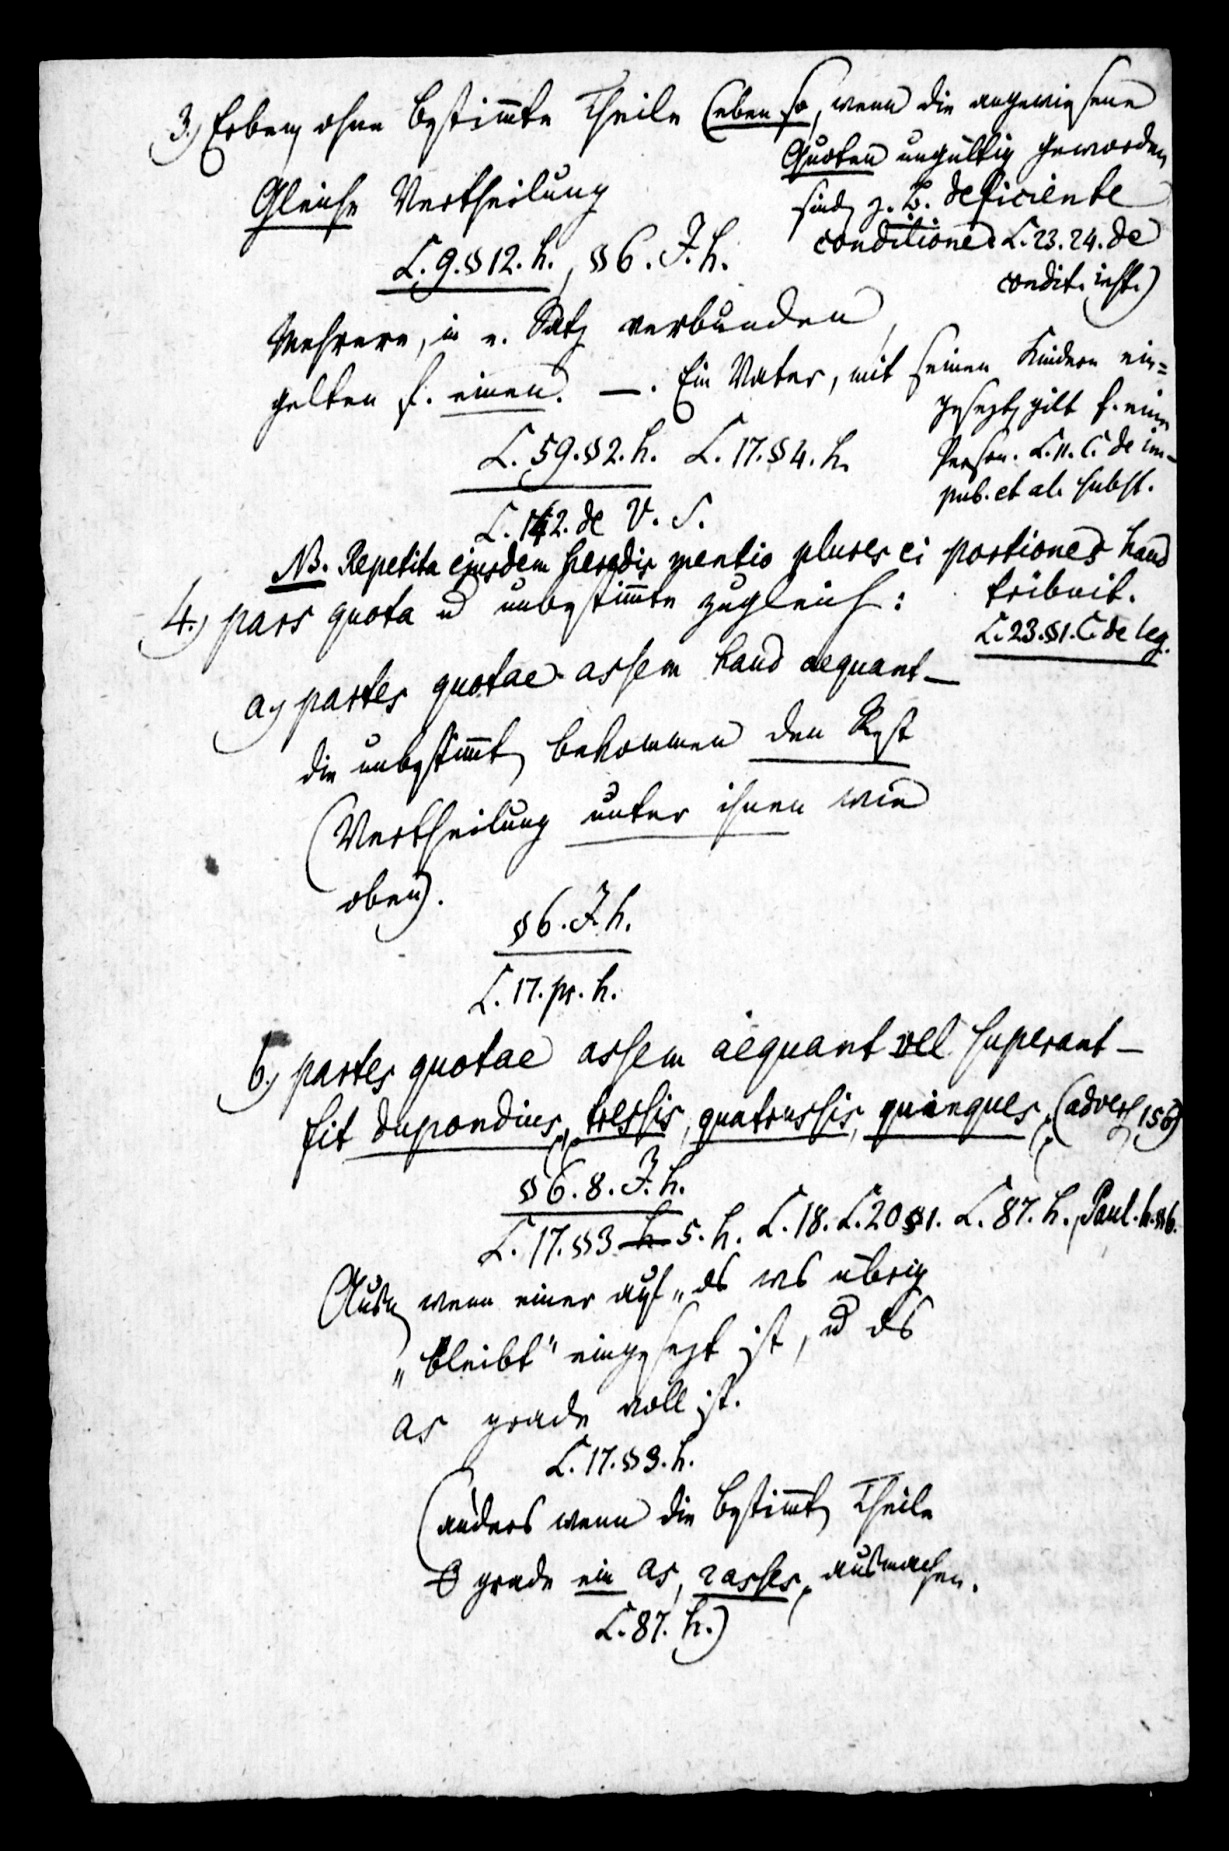 3.) Erben ohne bestim̅te Theile (eben so, wenn die angewiesene
Quoten ungültig geworden
sind z. B. deficiente
conditione. L. 23. 24. de
condit. inst.)
Gleiche Vertheilung
L. 9. § 12. h., § 6. J. h.
Mehrere, in e. Satz verbunden,
gelten f. einen. —. Ein Vater, mit seinen Kindern ein=
gesezt, gilt f. eine
Person. L. 11. C. de im-
pub. et al. subst.
L. 59. § 2. h. L. 17. § 4. h.
L. 142. de V. S.
NB. Repetita ejusdem heredis mentio plures ei portiones haud
tribuit.
L. 23. § 1. C. de leg.
4.) pars quota u unbestim̅te zugleich:
a.) partes quotae assem haud aequant —
die unbestim̅t bekommen den Rest
(Vertheilung unter ihnen wie
oben).
§ 6. J. h.
L. 17. pr. h.
b.) partes quotae assem aequant vel superant —
fit dupondius, tressis, quatrussis, quinques, (advers 156)
§ 6. 8. J. h.
L. 17. §§ 3 h 5. h. L. 18. L. 20 § 1. L. 87. h., Paul. h. § 6.
Ausn wenn einer auf „ds ws übrig
„bleibt" eingesezt ist, u ds
as grade voll ist.
L. 17. § 3. h.
(anders wenn die bestim̅t Theile
grade ein as, 2 asses, ausmachen.
L. 87. h.)